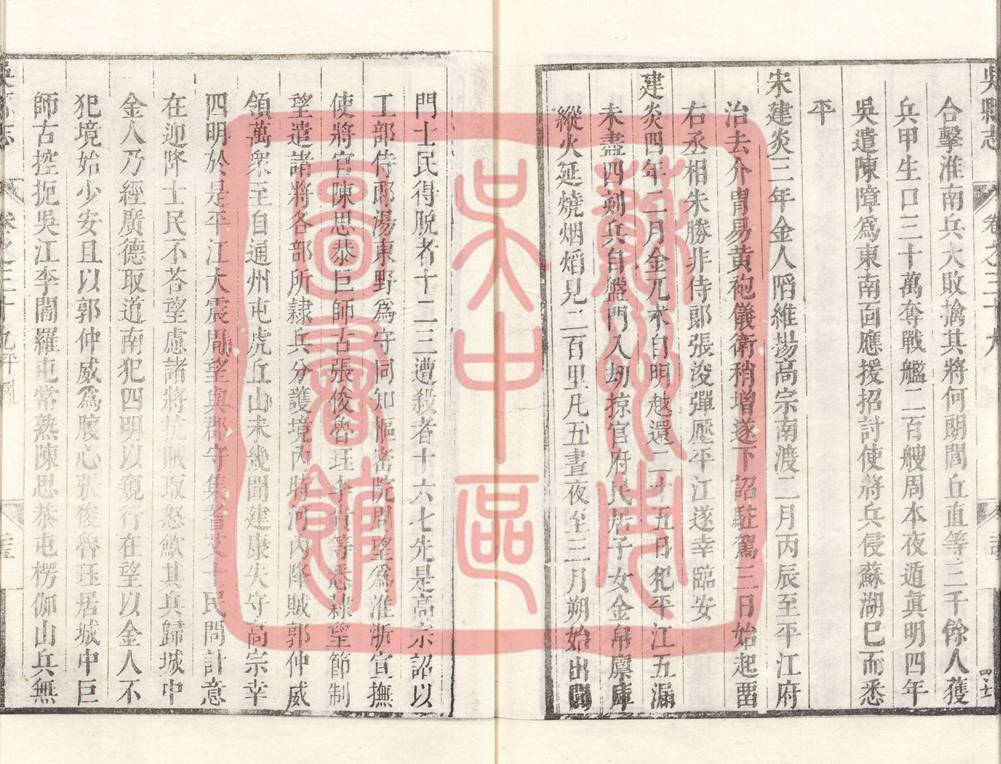 吳縣志
卷之三十九
合擊淮南兵大敗擒其將何朗閭丘直等三千餘人獲
兵甲生口三十萬奪戰艦二百艘周本夜遁眞明四年
吳遣陳璋爲東南面應援招討使將兵侵蘇湖巳而悉
平
宋建炎三年金人陷維揚高宗南渡二月丙辰至平江府
治去介胄易黃袍儀衛稍增遂下詔駐駕三日始起畱
右丞相朱勝非侍郎張浚彈壓平江遂幸臨安
建炎四年二月金兀朮自明越還二十五日犯平江五漏
未盡四刻兵自盤門入刧掠官府民居子女金帛廩庫
縱火延燒烟熖見二百里凡五晝夜至三月朔始出閶
門士民得脫者十二三遭殺者十六七先是高宗詔以
工部侍郎湯東野爲守同知樞密院周望爲淮浙宣撫
使將官陳思恭巨師古張俊魯珏李貴等悉隸望節制
望遣諸將各部所隸兵分護境內將河內降賊郭仲威
領萬衆至自通州屯虎丘山未幾聞建康失守高宗幸
四明於是平江大震周望與郡守集耆艾士民問計意
在迎降士民不荅望慮諸將
賊取怒歛其兵歸城中
金人乃經廣德取道南犯四明以窺行在望以金人不
犯境始少安且以郭仲威爲腹心張俊魯珏居城中巨
師古控扼吳江李閻羅屯常熟陳思恭屯楞伽山兵無
吳縣志
卷之三十九
蘇州市
吳中區
圖書館